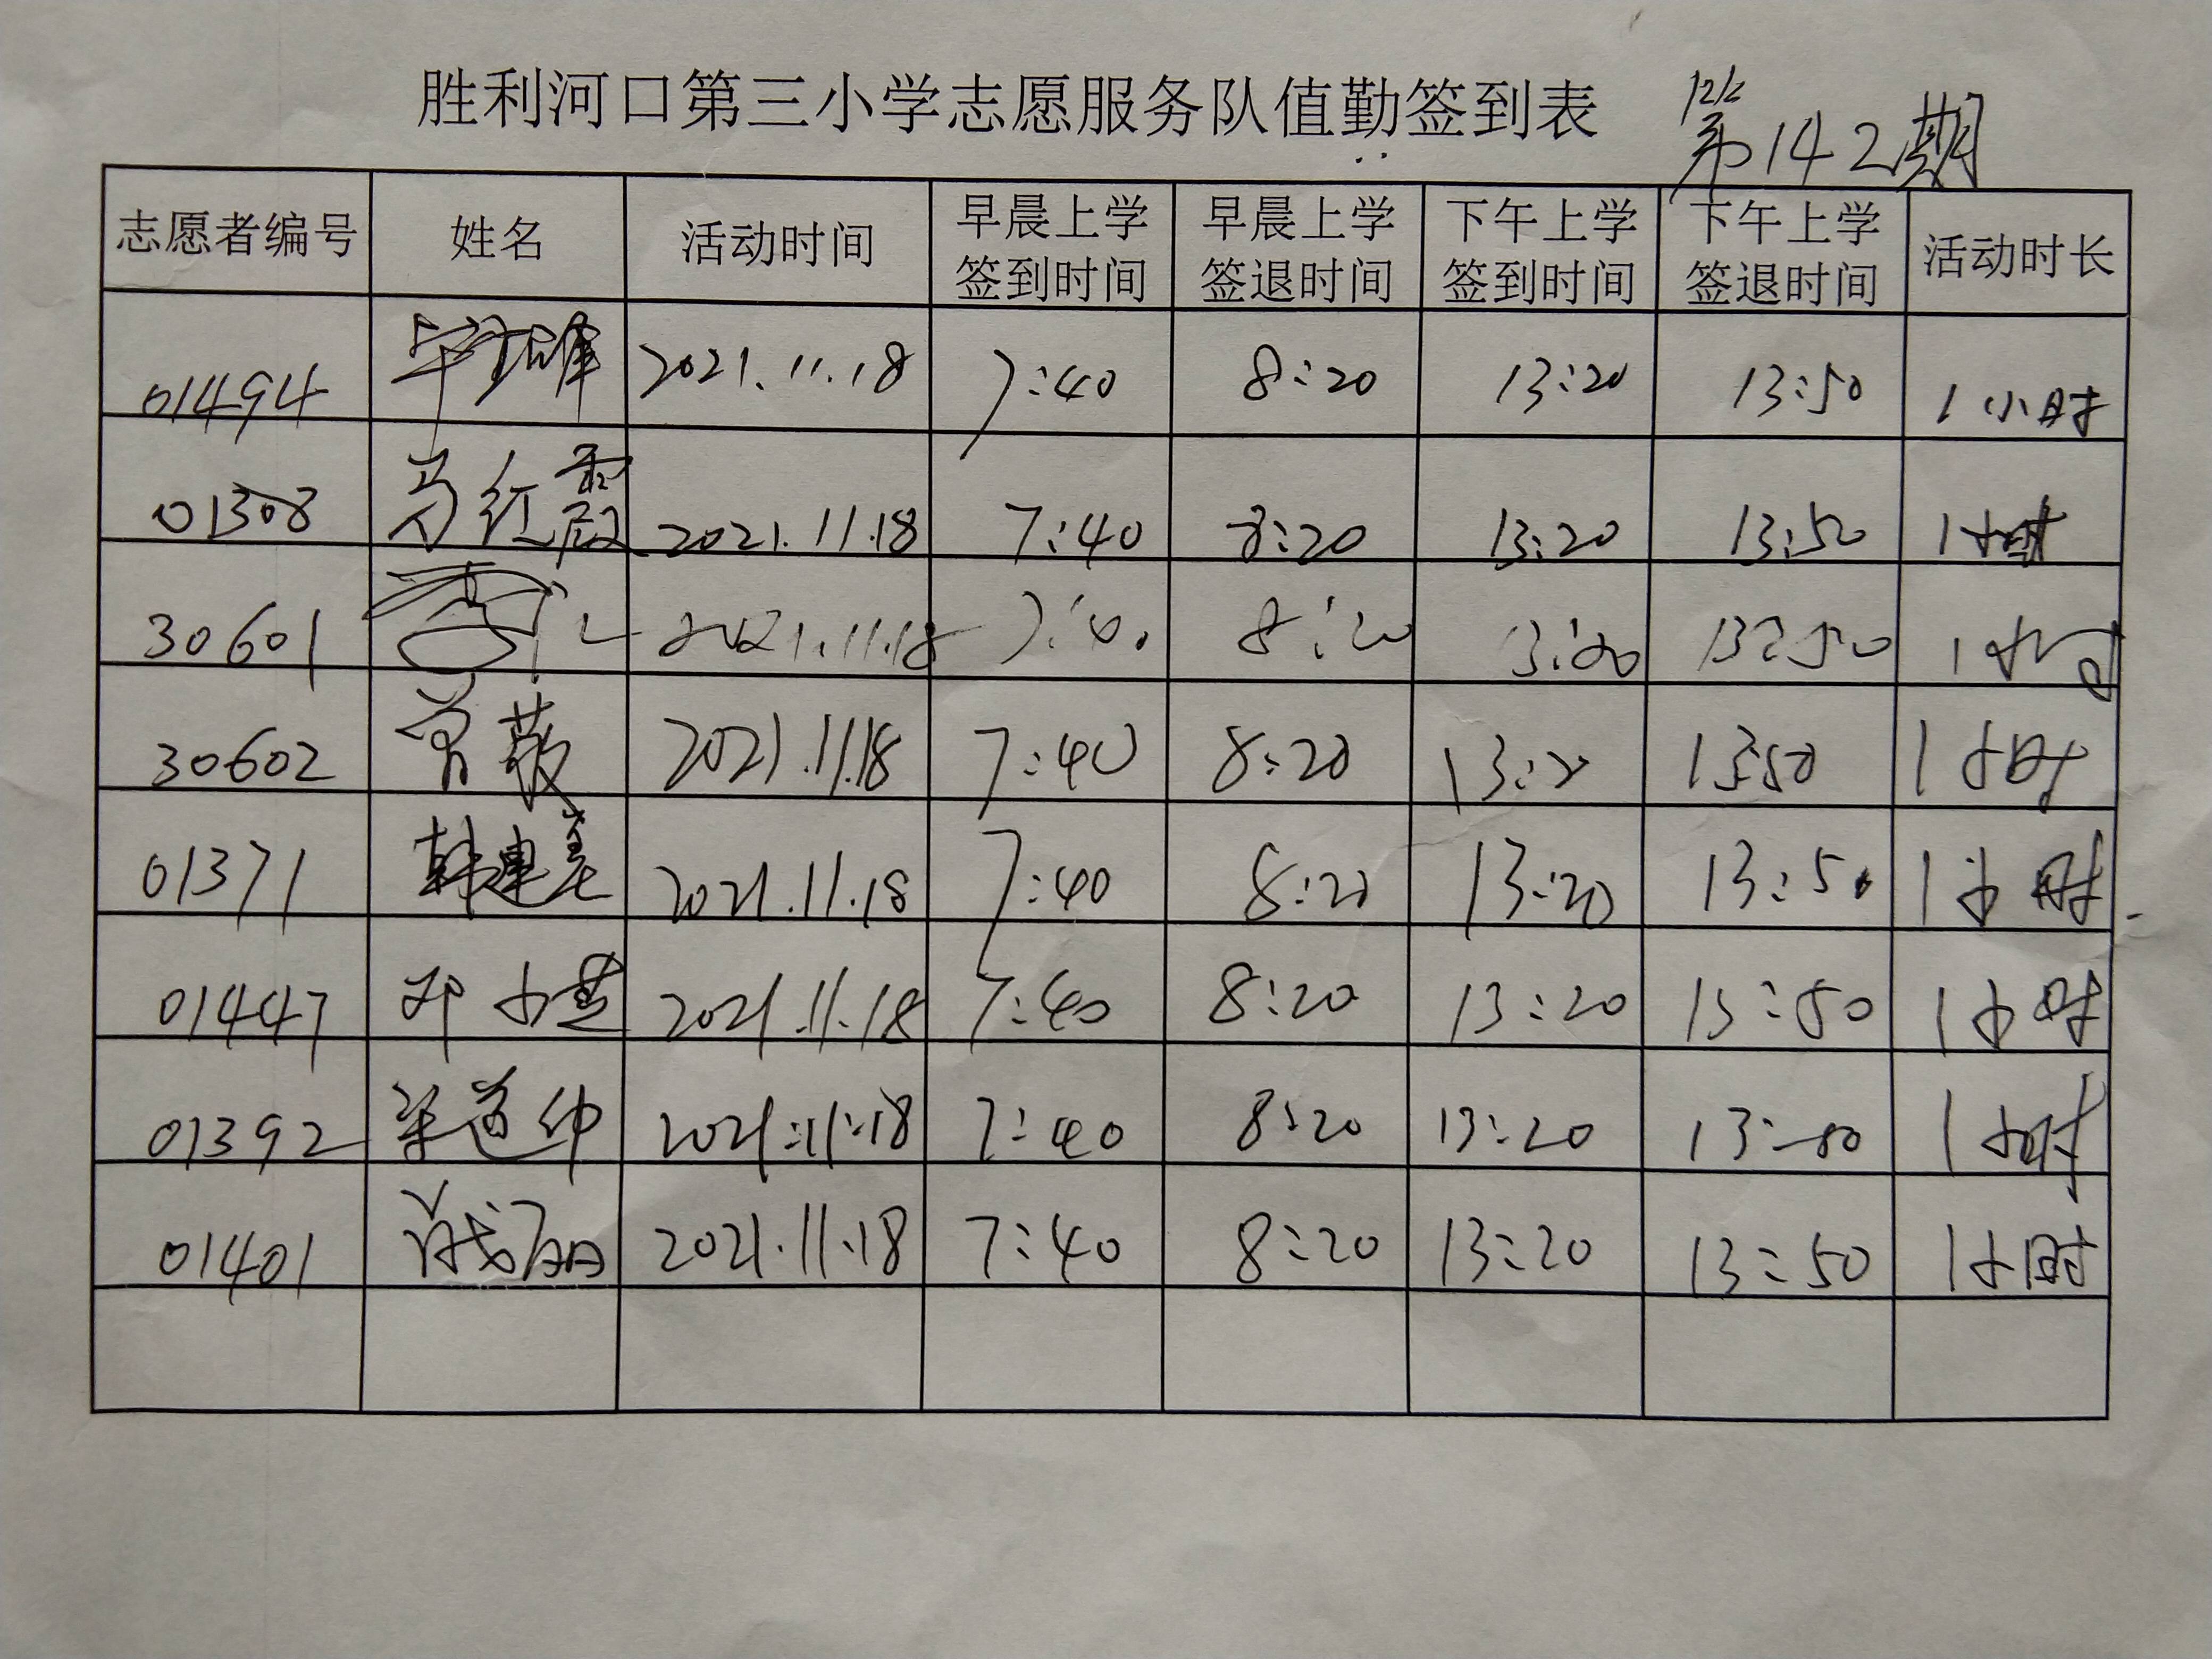 胜利河口第三小学志愿服务队值勤签到表
第142期
志愿者编号 姓名 活动时间 早晨上学签到时间 早晨上学签退时间 下午上学签到时间 下午上学签退时间 活动时长
01494 2021.11.18 7:40 8:20 13:20 13:50 1小时
01308 马红霞 2021.11.18 7:40 8:20 13:20 13:50 1小时
30601 2021.11.18 7:40 8:20 13:20 13:50 1小时
30602 2021.11.18 7:40 8:20 13:2 13:50 1小时
01371 韩建美 2021.11.18 7:40 8:20 13:20 13:50 1小时
01447 邓小慧 2021.11.18 7:40 8:20 13:20 13:50 1小时
01392 2021.11.18 7:40 8:20 13:20 13:50 1小时
01401 2021.11.18 7:40 8:20 13:20 13:50 1小时